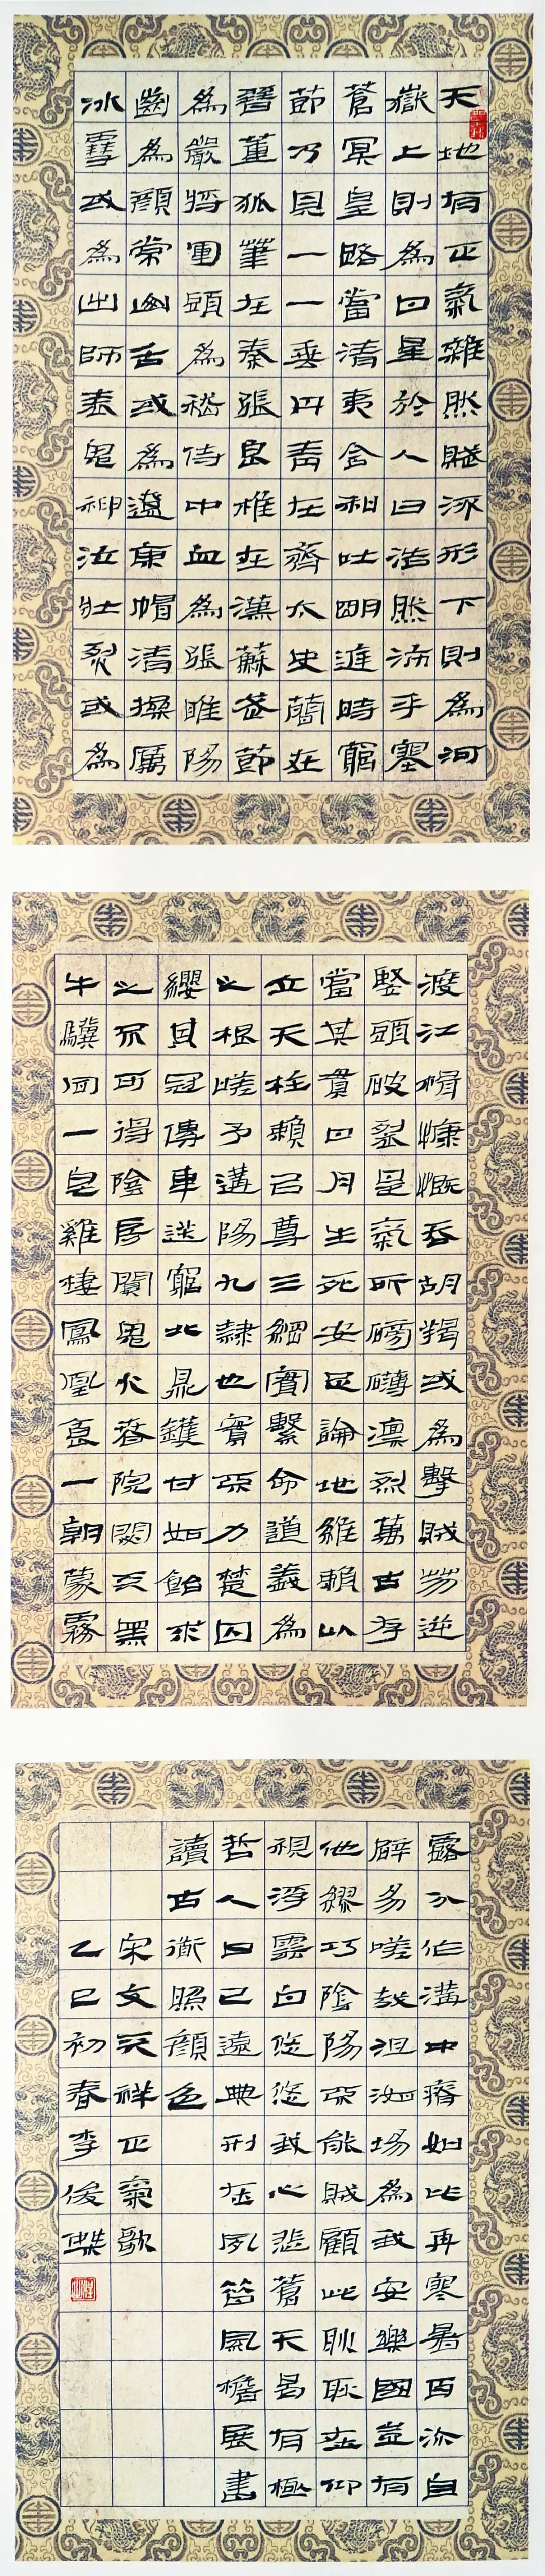 天地有正氣雜然賦流形下則為河
嶽上則為日星於人曰浩然沛乎塞
蒼冥皇路當清夷含和吐明進時窮
節乃見一一垂丹青在齊太史簡在
晉董狐筆在秦張良椎在漢蘇武節
為嚴將軍頭為嵇侍中血為張睢陽
齒為顏常山舌或為遼東帽清操厲
冰雪或為出師表鬼神泣壯烈或為
渡江楫慷慨吞胡羯或為擊賊笏逆
豎頭破裂是氣所磅礴凜烈萬古存
當其貫日月生死安足論地維賴以
立天柱賴以尊三綱實繫命道義為
之根嗟予遘陽九隸也實不力楚囚
纓其冠傳車送窮北鼎鑊甘如飴求
之不可得陰房闃鬼火春院閟天黑
牛驥同一皂雞棲鳳凰食一朝蒙霧
露分作溝中瘠如此再寒暑百沴自
辟易嗟哉沮洳場為我安樂國豈有
他繆巧陰陽不能賊顧此耿耿在仰
視浮雲白悠悠我心悲蒼天曷有極
哲人日已遠典刑在夙昔風檐展書
讀古道照顏色
宋文天祥正氣歌
乙巳初春李俊